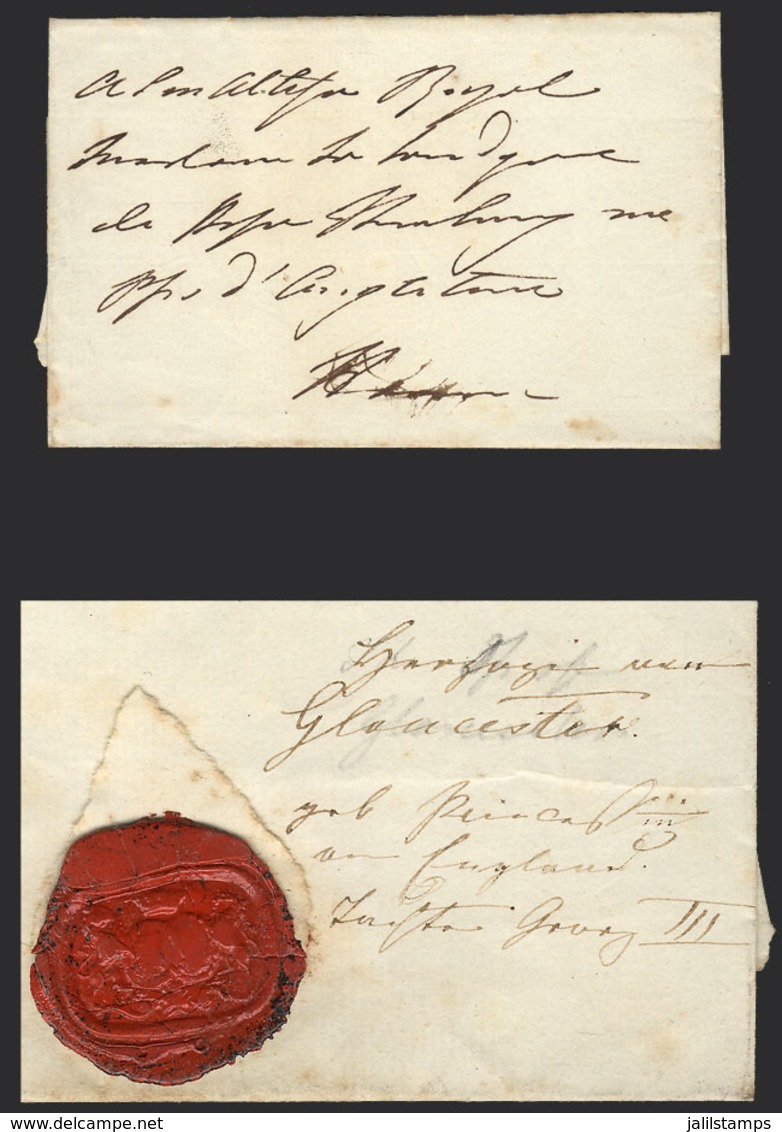 A Son Altesse Royal
Madame La Landgrave
de Hesse Hombourg née
Psse d'Angleterre
Herzogin von
Gloucester.
geb Princessin
von England.
Tochter Georg III
www.delcampe.net
jalilstamps